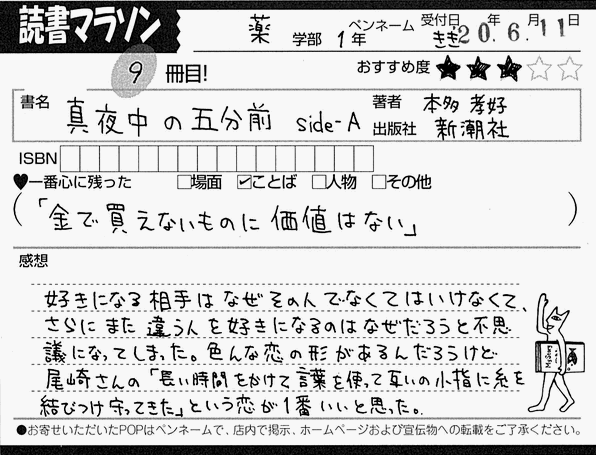 読書マラソン
薬 学部 1年 ペンネーム きぎ 受付日 20年 6.月 11日
9 冊目!
おすすめ度 ★★★☆☆
書名 真夜中の五分前 side-A
著者 本多 孝好
出版社 新潮社
ISBN
♥一番心に残った □場面 ☑ことば □人物 □その他
(「金で買えないものに価値はない」)
感想
好きになる相手はなぜその人でなくてはいけなくて、
さらにまた違う人を好きになるのはなぜだろうと不思
議になってしまった。色んな恋の形があるんだろうけど
尾崎さんの「長い時間をかけて言葉を使って互いの小指に糸を
結びつけ守ってきた」という恋が1番いいと思った。
●お寄せいただいたPOPはペンネームで、店内で掲示、ホームページおよび宣伝物への転載をご了承ください。